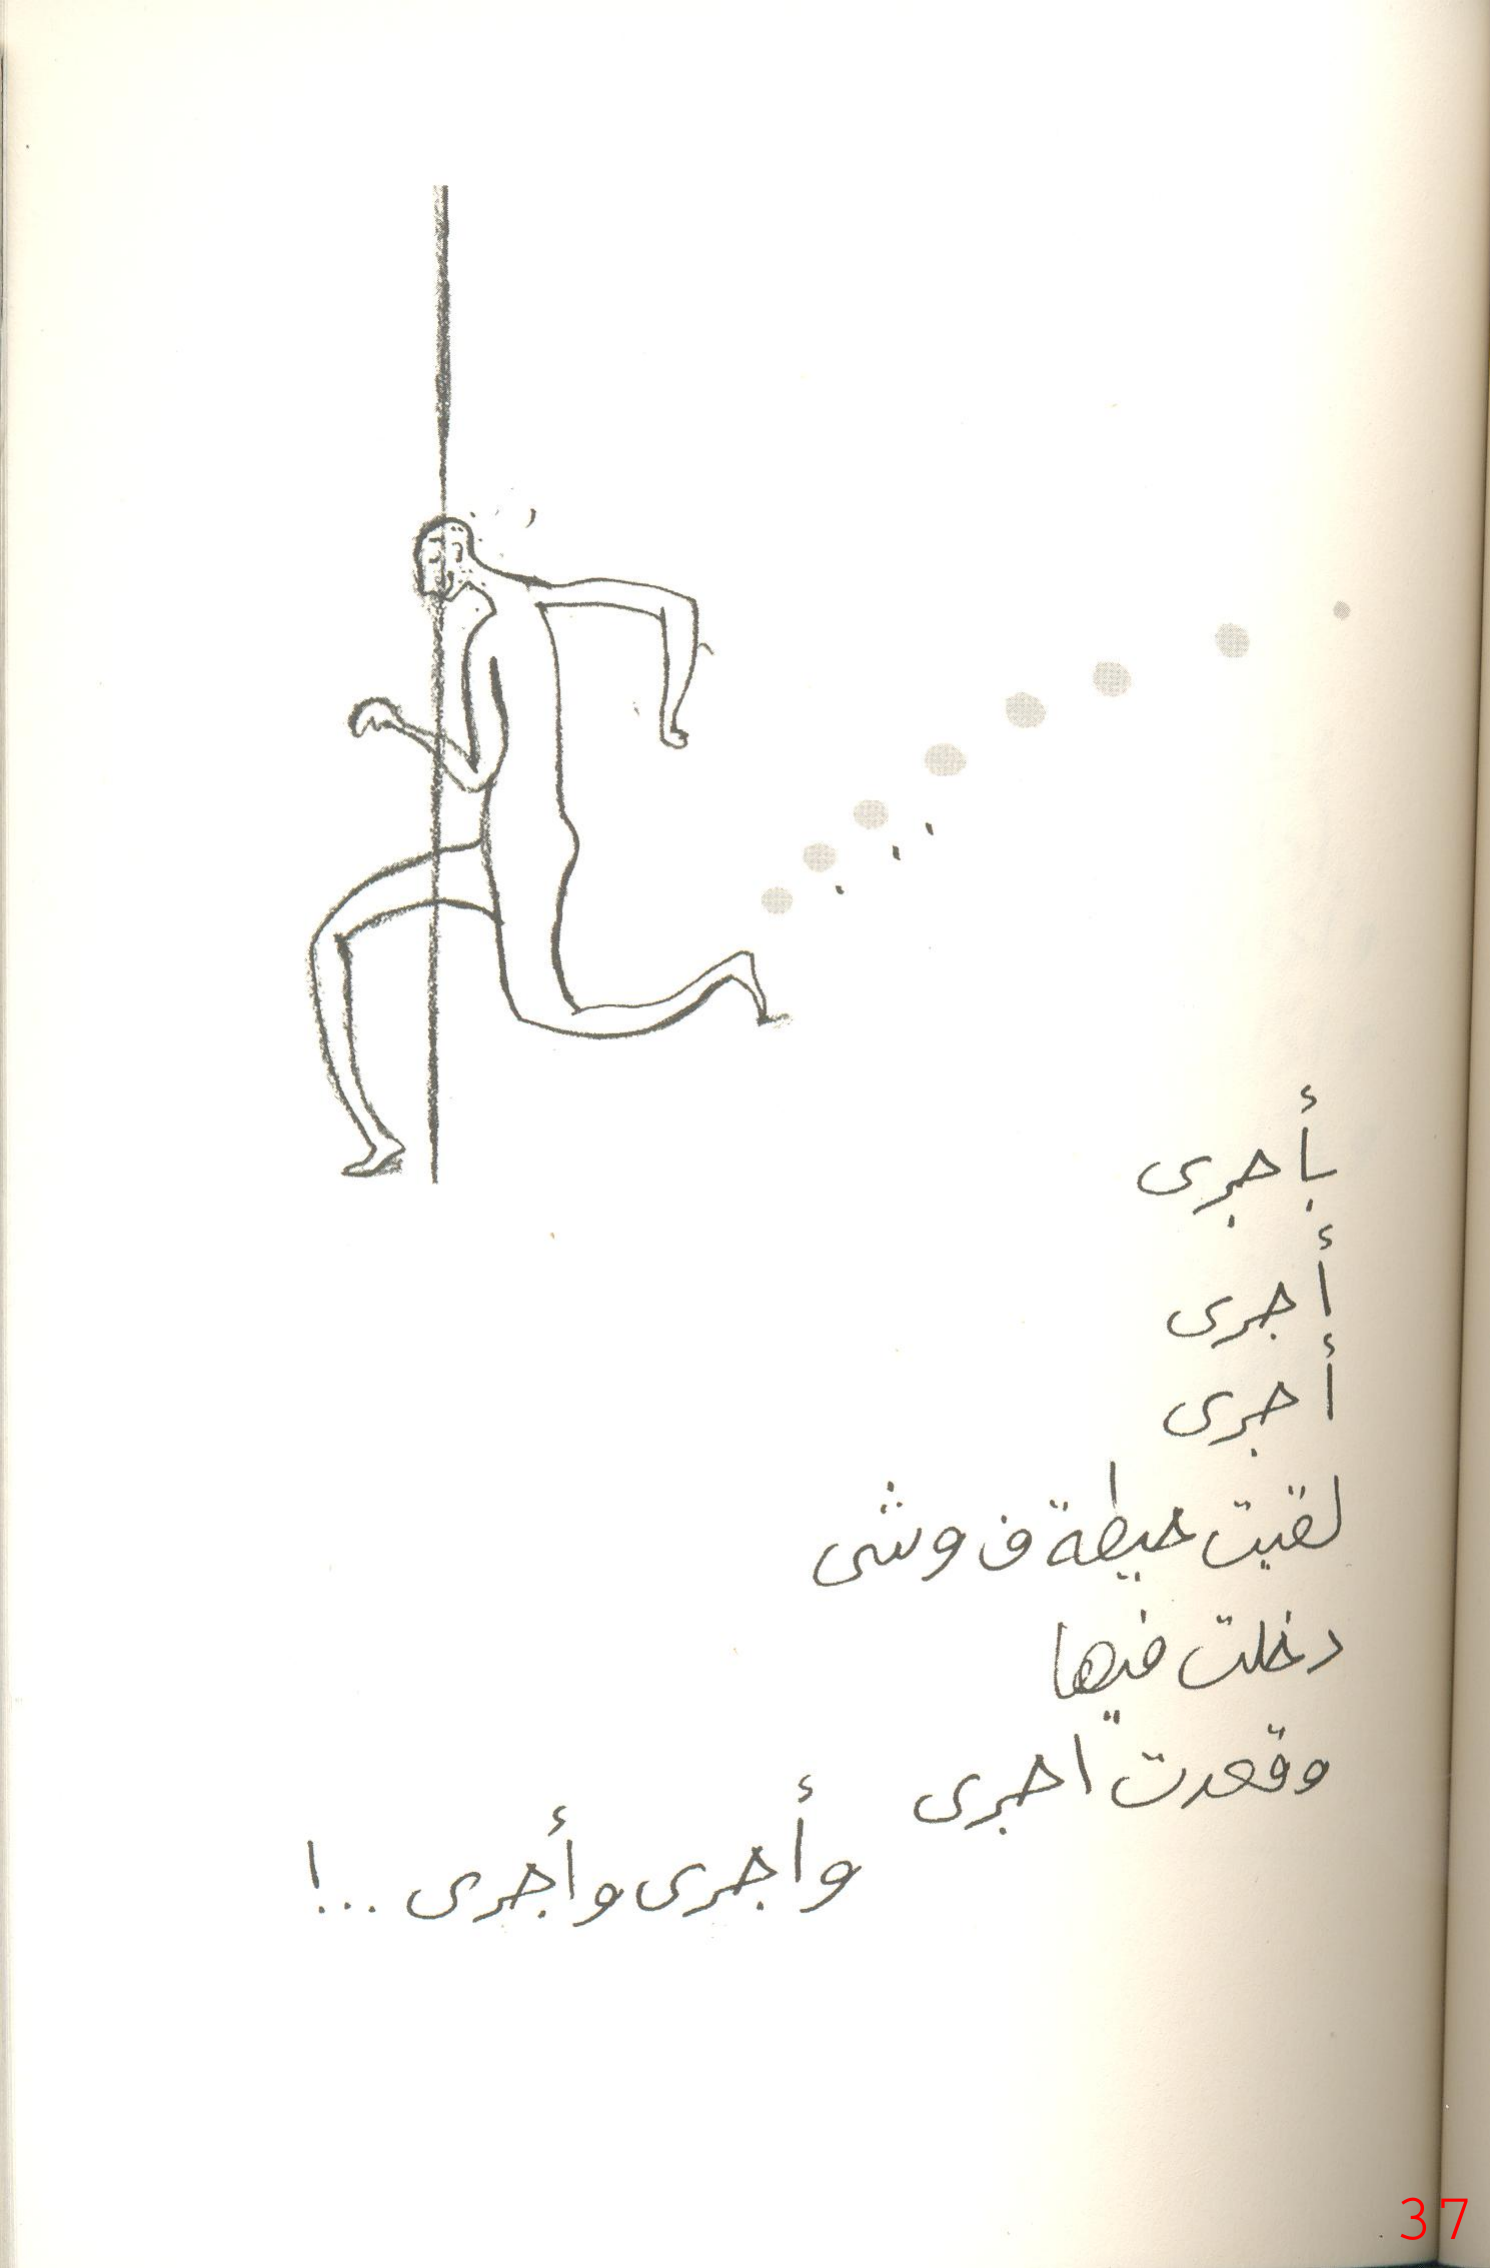 بأجرى
أجرى
أجرى
لقيت حيطة ف وشى
دخلت فيها
وقعدت اجرى
وأجرى وأجرى ...!
37